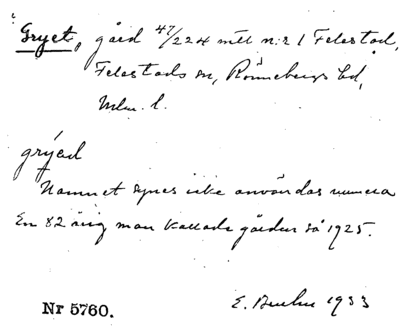 Gryet, gård 47/224 mtl n:r 1 Felestad,
Felestads sn, Rönnebergs hd,
Mlm. l.
grýed
Namnet synes icke användas numera
En 82 årig man kallade gården så 1925.
E. 1933
Nr 5760.